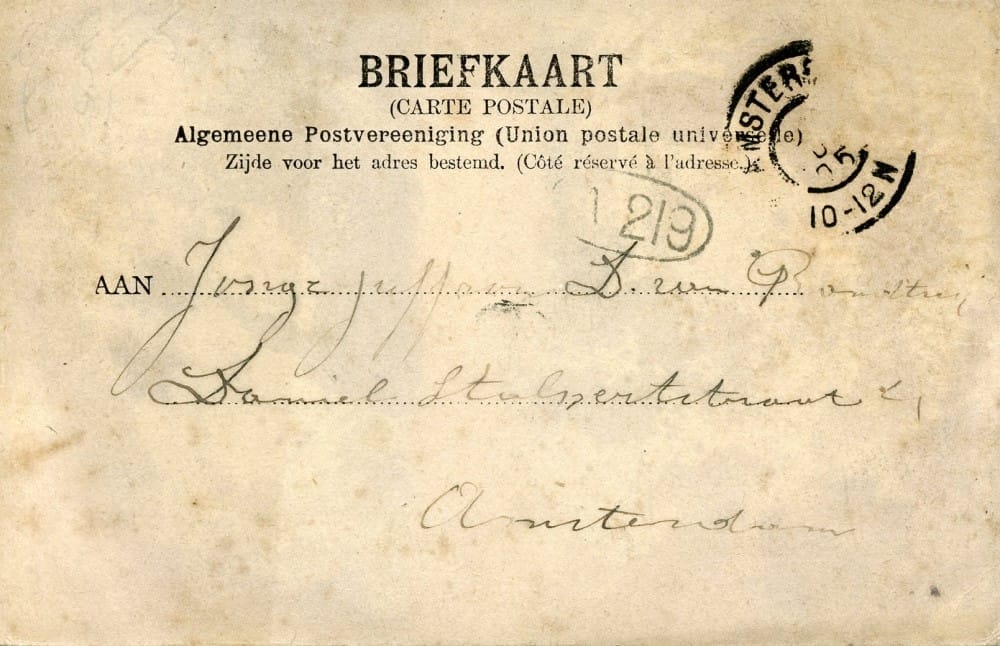 BRIEFKAART
(CARTE POSTALE)
Algemeene Postvereeniging (Union postale universelle)
Zijde voor het adres bestemd. (Côté réservé à l'adresse.)
MSTER
05
10-12N
1 219
AAN Jonge juffrouw D. van
Daniel Stalpertstraat
Amsterdam